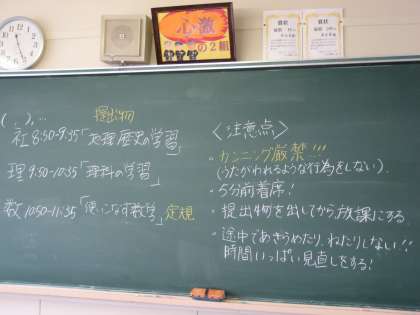 心激
の2組
賞状
賞状
提出物
社 8:50-9:35「地理歴史の学習」
理 9:50-10:35「理科の学習」
数 10:50-11:35「使いこなす数学」定規
〈注意点〉
・カンニング厳禁!!!
(うたがわれるような行為をしない)
・5分前着席!
・提出物を出してから放課にする。
・途中であきらめたり、ねたりしない!!
時間いっぱい見直しをする!